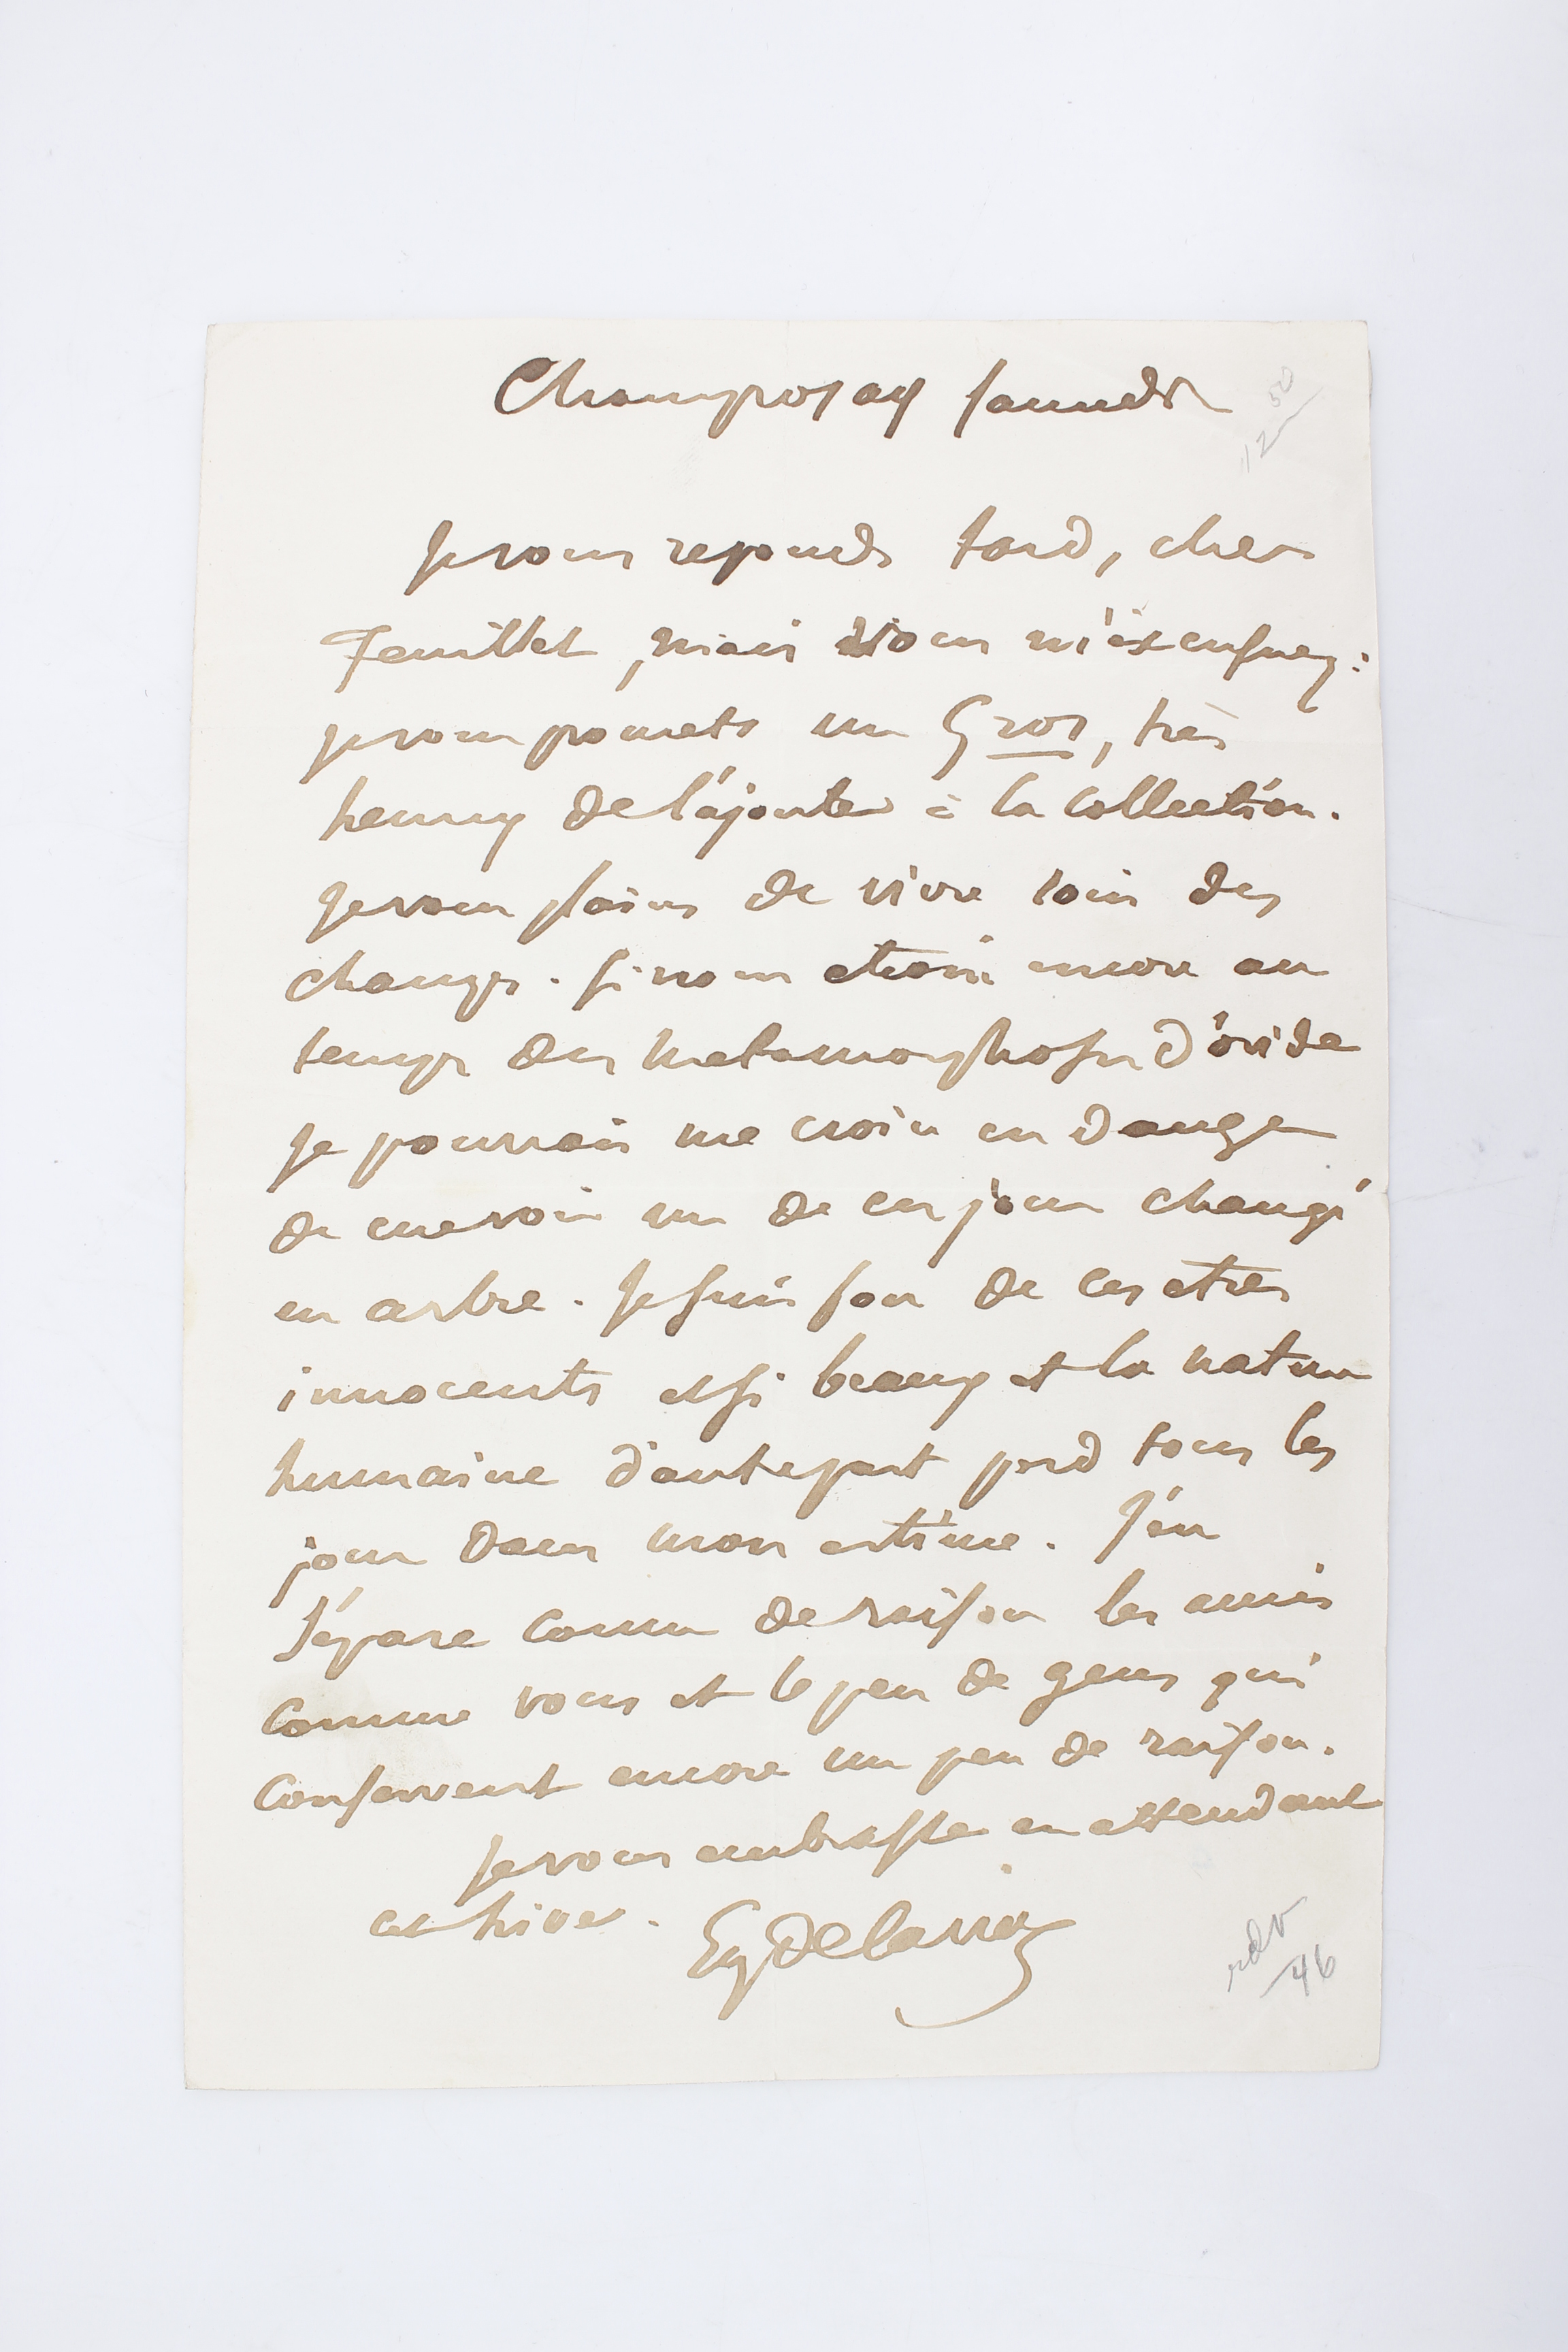 Champrosay samedi
12 50
Je vous reponds tard, cher
Feuillet, mais vous m'excuserez :
je vous promets un Gros, très
heureux de l'ajouter à la collection.
Je vous plains de vivre loin des
champs. Si nous etions encore au
temps des metamorphoses d'ovide
je pourrais me croire en danger
de me voir un de ces jours changé
en arbre. Je suis fou de ces etres
innocents et si beaux et la nature
humaine d'autre part perd tous les
jours dans mon estime. J'en
sépare comme de raison les amis
comme vous et le peu de gens qui
conservent encore un peu de raison.
Je vous embrasse en attendant
cet hiver. Eug Delacroix
46